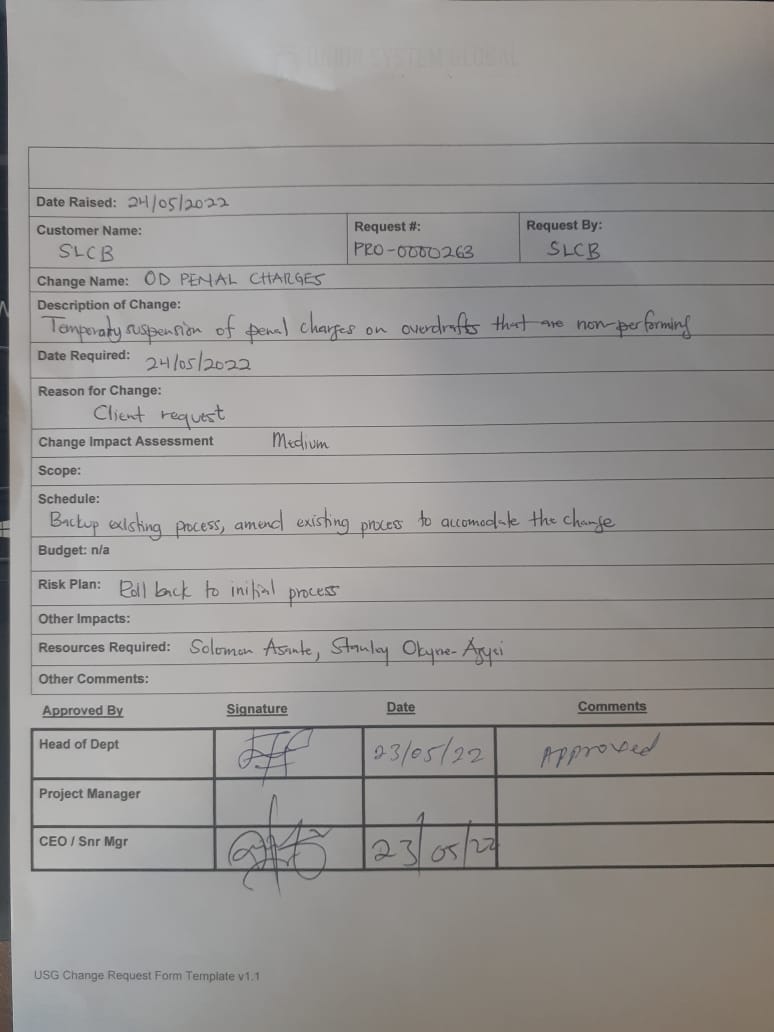 Date Raised: 24/05/2022
Customer Name: Request #: Request By:
SLCB PRO-0000263 SLCB
Change Name: OD PENAL CHARGES
Description of Change:
Temporary suspension of penal charges on overdrafts that are non-performing
Date Required: 24/05/2022
Reason for Change:
Client request
Change Impact Assessment Medium
Scope:
Schedule:
Backup existing process, amend existing process to accomodate the change
Budget: n/a
Risk Plan: Roll back to initial process
Other Impacts:
Resources Required: Solomon Asante, Stanley Okyne-
Other Comments:
Approved By Signature Date Comments
Head of Dept 23/05/22 Approved
Project Manager
CEO / Snr Mgr 23/05/22
USG Change Request Form Template v1.1